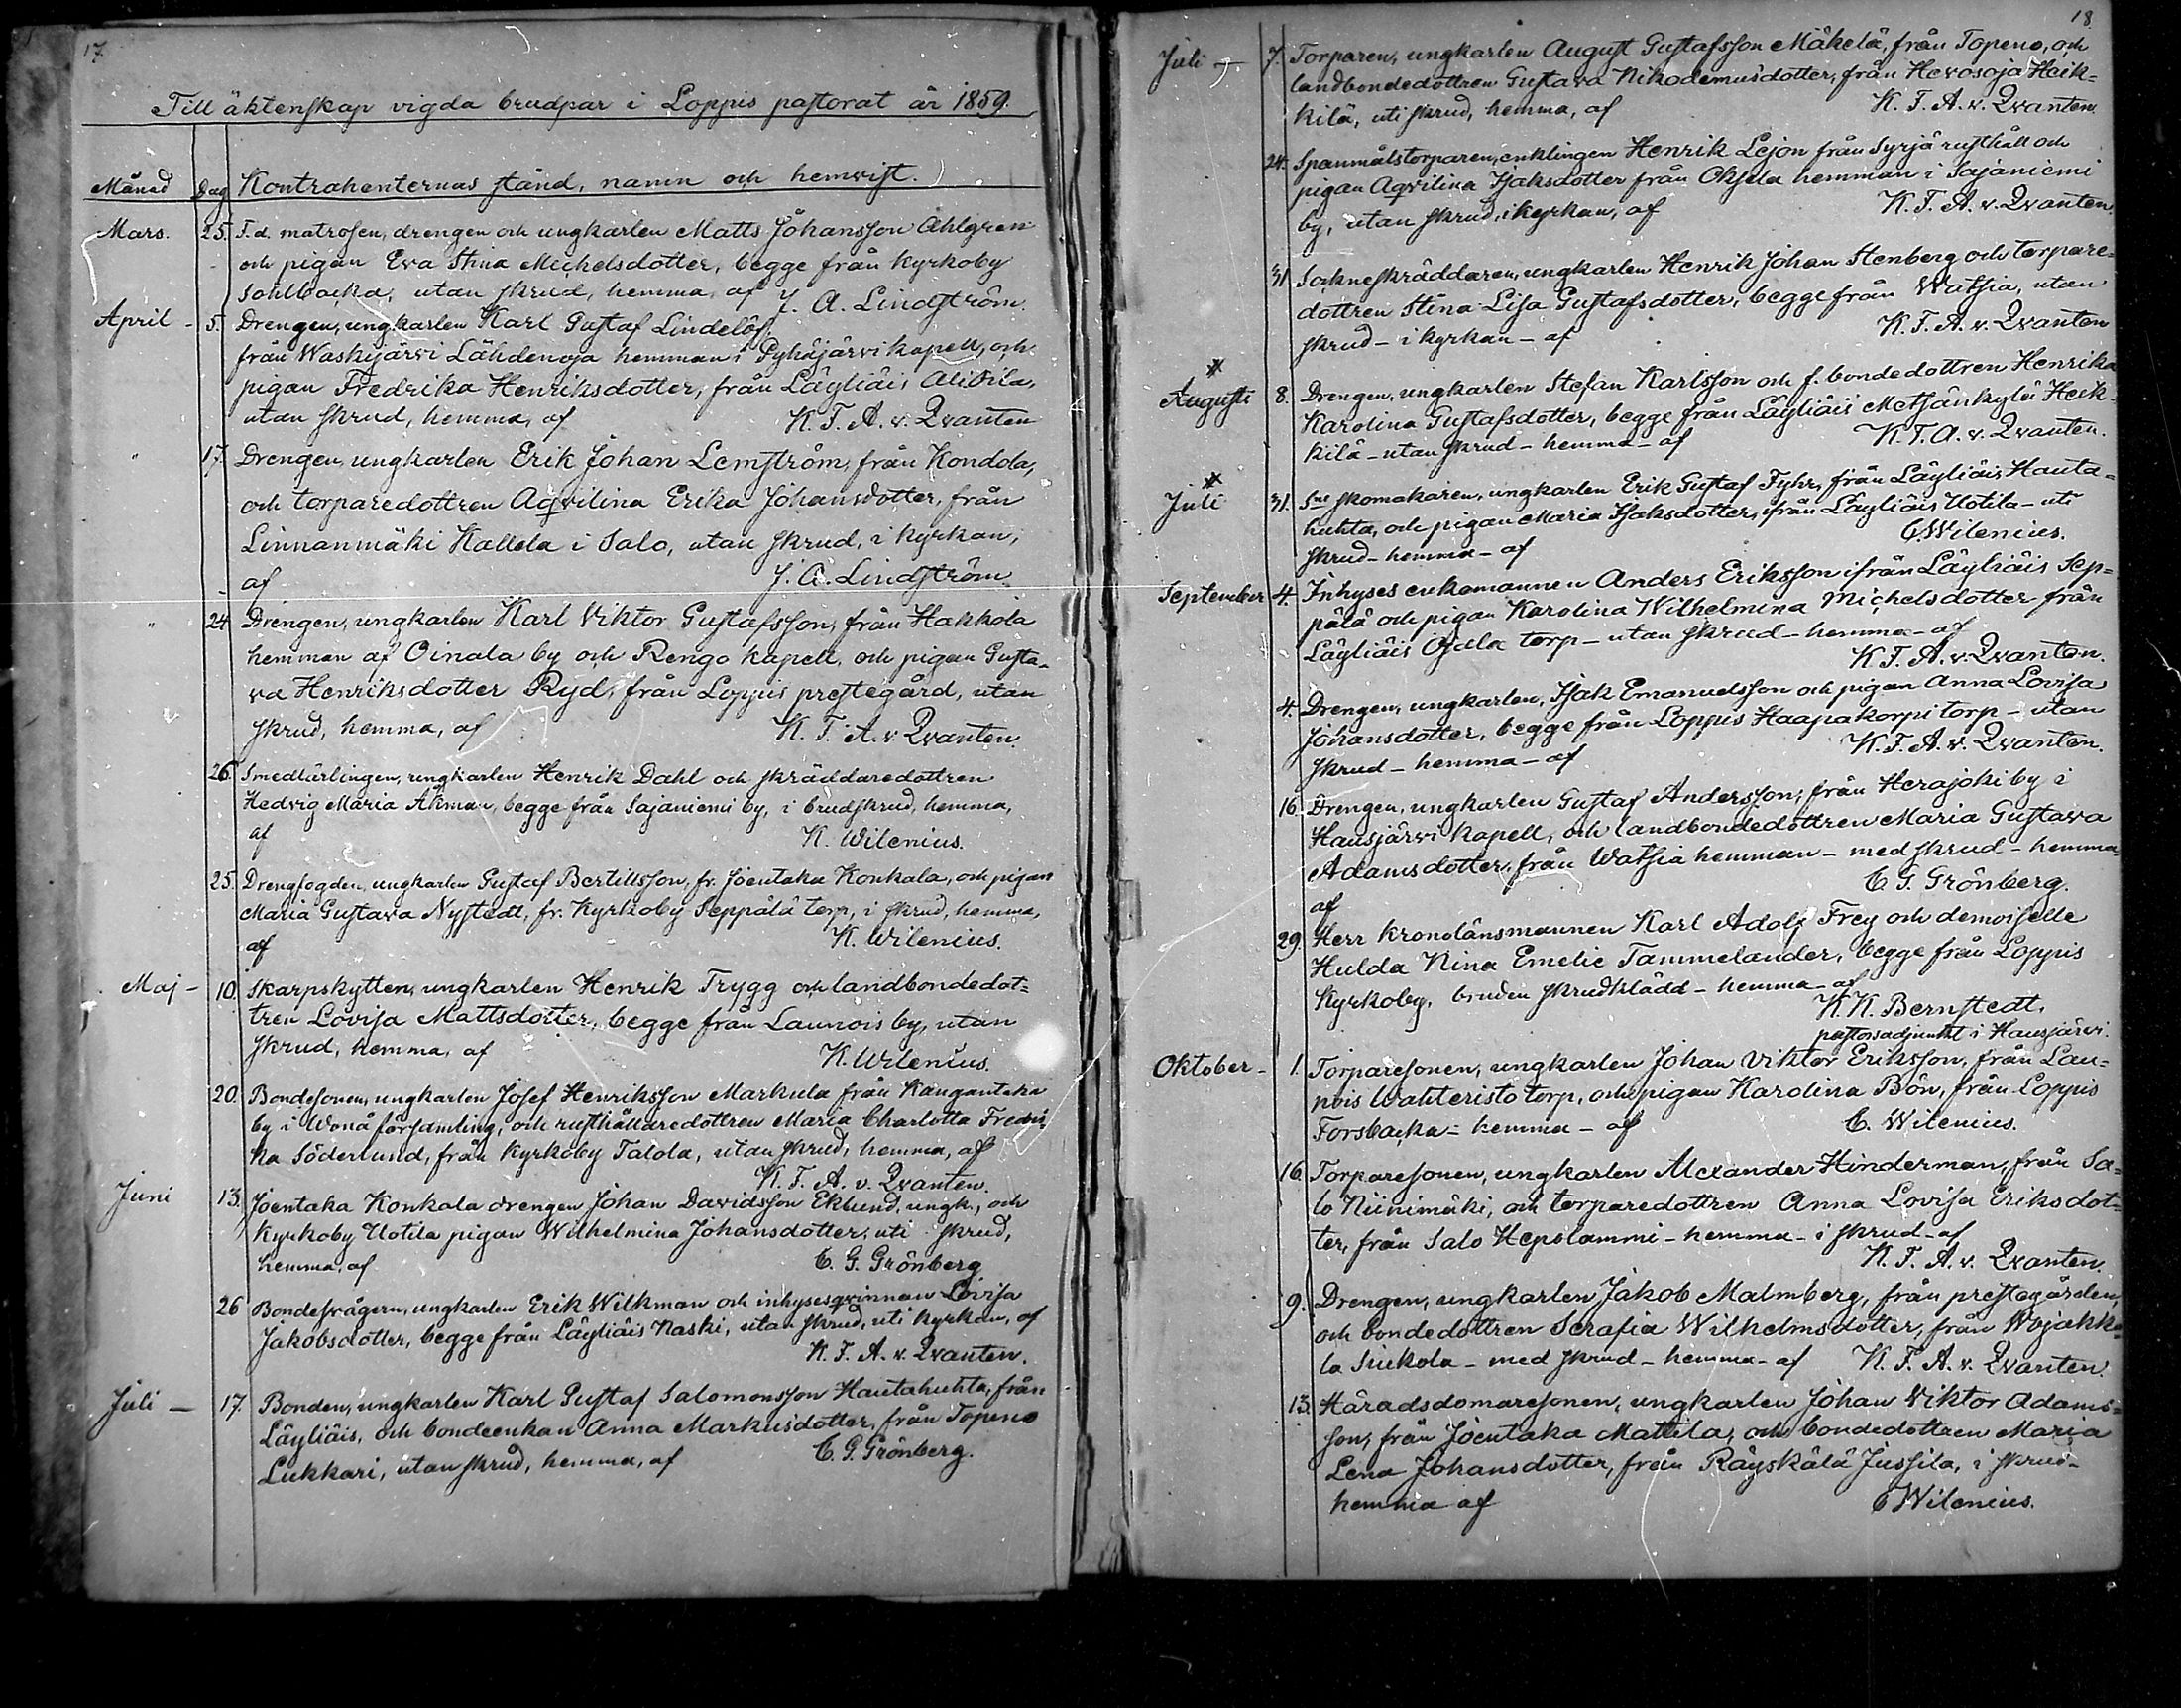 17.
Till äktenskap vigda brudpar i Loppis pastorat år 1859.
Månad Dag Kontrahenternas stånd, namn och hemvist.
Mars. 25. F.d. matrosen, drengen och ungkarlen Matts Johansson Åhlgren
och pigan Eva Stina Michelsdotter, begge från Kyrkoby
Sohlbacka, utan skrud, hemma, af J. A. Lindström.
April - 5. Drengen, ungkarlen Karl Gustaf Lindelöf,
från Waskijärvi Lähdenoja hemman i Pyhäjärvi kapell, och
pigan Fredrika Henriksdotter, från Läyliäis Alitila,
utan skrud, hemma, af K. F. A. v. Qvanten
" 17. Drengen, ungkarlen Erik Johan Lemström, från Kondola,
och torparedottren Aqvilina Erika Johansdotter, från
Linnanmäki Kallela i Salo, utan skrud, i kyrkan,
af J. A. Lindström.
" 24 Drengen, ungkarlen Karl Viktor Gustafsson, från Hakkola
hemman af Oinala by och Rengo kapell, och pigan Gusta-
va Henriksdotter Ryd, från Loppis prestegård, utan
skrud, hemma, af K. F. A. v. Qvanten.
26. Smedlärlingen, ungkarlen Henrik Dahl och skräddaredottren
Hedvig Maria Åkman, begge från Sajaniemi by, i brudskrud, hemma,
af K. Wilenius.
25. Drengfogden, ungkarlen Gustaf Bertillsson, fr. Joentaka Konkala, och pigan
Maria Gustava Nystedt, fr. Kyrkoby Seppälä torp, i skrud, hemma,
af K. Wilenius.
Maj - 10. Skarpskytten, ungkarlen Henrik Trygg och landbondedot=
tren Lovisa Mattsdotter, begge från Launois by, utan
skrud, hemma, af K. Wilenius.
20. Bondesonen, ungkarlen Josef Henriksson Markula från Kangantaka
by i Wonå församling, och rusthållaredottren Maria Charlotta Fredri
ka Söderlund, från Kyrkoby Talola, utan skrud, hemma, af
K. F. A. v. Qvanten.
Juni 13. Joentaka Konkala drengen Johan Davidsson Eklund, ungk., och
Kyrkoby Uotila pigan Wilhelmina Johansdotter, uti skrud,
hemma, af C. G. Grönberg
26 Bondesvågern, ungkarlen Erik Wilkman och inhysesqvinnan Lovisa
Jakobsdotter, begge från Läyliäis Naski, utan skrud, uti kyrkan, af
K. F. A. v. Qvanten.
Juli — 17. Bonden, ungkarlen Karl Gustaf Salomonsson Hautahuhta, från
Läyliäis, och bondeenkan Anna Markusdotter, från Topeno
Lukkari, utan skrud, hemma, af C. G. Grönberg.
18
Juli - 7. Torparen, ungkarlen August Gustafsson Mäkelä, från Topeno, och
landbondedottren Gustava Nikodemusdotter, från Hevosoja Heik=
kilä, uti skrud, hemma, af K. F. A. v. Qvanten.
24. Spanmålstorparen, enklingen Henrik Lejon från Syrjä rusthåll och
pigan Aqvilina Isaksdotter från Oksela hemman i Sajaniemi
by, utan skrud, i kyrkan, af K. F. A. v. Qvanten.
31 Sockneskräddaren, ungkarlen Henrik Johan Stenberg och torpare=
dottren Stina Lisa Gustafsdotter, begge från Watsia, utan
skrud - i kyrkan - af K. F. A. v. Qvanten
Augusti 8. Drengen, ungkarlen Stefan Karlsson och f. bondedottren Henrika
Karolina Gustafsdotter, begge från Läyliäis Metsänkylä Heik-
kilä - utan skrud - hemma - af K. F. A. v. Qvanten.
Juli 31. Sne skomakaren, ungkarlen Erik Gustaf Fyhr, från Läyliäis Hauta=
huhta, och pigan Maria Isaksdotter, från Läyliäis Uotila - uti
skrud - hemma - af C. Wilenius.
September 4. Inhyses enkemannen Anders Eriksson ifrån Läyliäis Sep=
pälä och pigan Karolina Wilhelmina Michelsdotter från
Läyliäis Ojala torp - utan skrud - hemma - af
K. F. A. v. Qvanten.
4. Drengen, ungkarlen, Isak Emanuelsson och pigan Anna Lovisa
Johansdotter, begge från Loppis Haapakorpi torp - utan
skrud - hemma - af K. F. A. v. Qvanten.
16. Drengen, ungkarlen Gustaf Andersson, från Herajoki by i
Hausjärvi kapell, och landbondedottren Maria Gustava
Adamsdotter, från Watsia hemman - med skrud - hemma,
af C. G. Grönberg.
29. Herr kronolänsmannen Karl Adolf Frey och demoiselle
Hulda Nina Emelie Tammelander, begge från Loppis
Kyrkoby, bruden skrudklädd - hemma - af
K. K. Bernstedt,
pastorsadjunkt i Hausjärvi.
Oktober - 1. Torparesonen, ungkarlen Johan Viktor Eriksson, från Lau=
nois Wahteristo torp, och pigan Karolina Bön, från Loppis
Forsbacka - hemma - af C. Wilenius.
16. Torparesonen, ungkarlen Alexander Hinderman, från Sa=
lo Niinimäki, och torparedottren Anna Lovisa Eriksdot=
ter, från Salo Hepolammi - hemma - i skrud - af
K. F. A. v. Qvanten.
9. Drengen, ungkarlen Jakob Malmberg, från prestegården,
och bondedottren Serafia Wilhelmsdotter, från Wojakka
la Suikola - med skrud - hemma - af K. F. A. v. Qvanten.
13. Häradsdomaresonen, ungkarlen Johan Viktor Adams=
son, från Joentaka Mattila, och bondedottren Maria
Lena Johansdotter, från Räyskälä Jussila, i skrud -
hemma af C Wilenius.